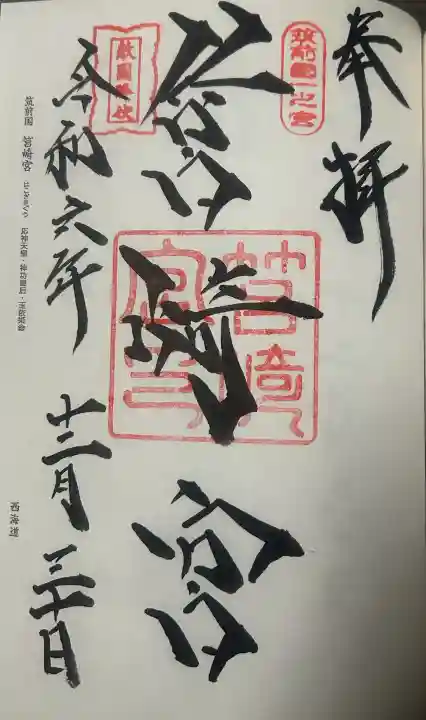 奉拝
筑前國一之宮
筥崎宮
筥崎宮
敵國降伏
令和六年 十二月 三十日
筑前国 筥崎宮 はこざきぐう 応神天皇・神功皇后・玉依姫命
西海道